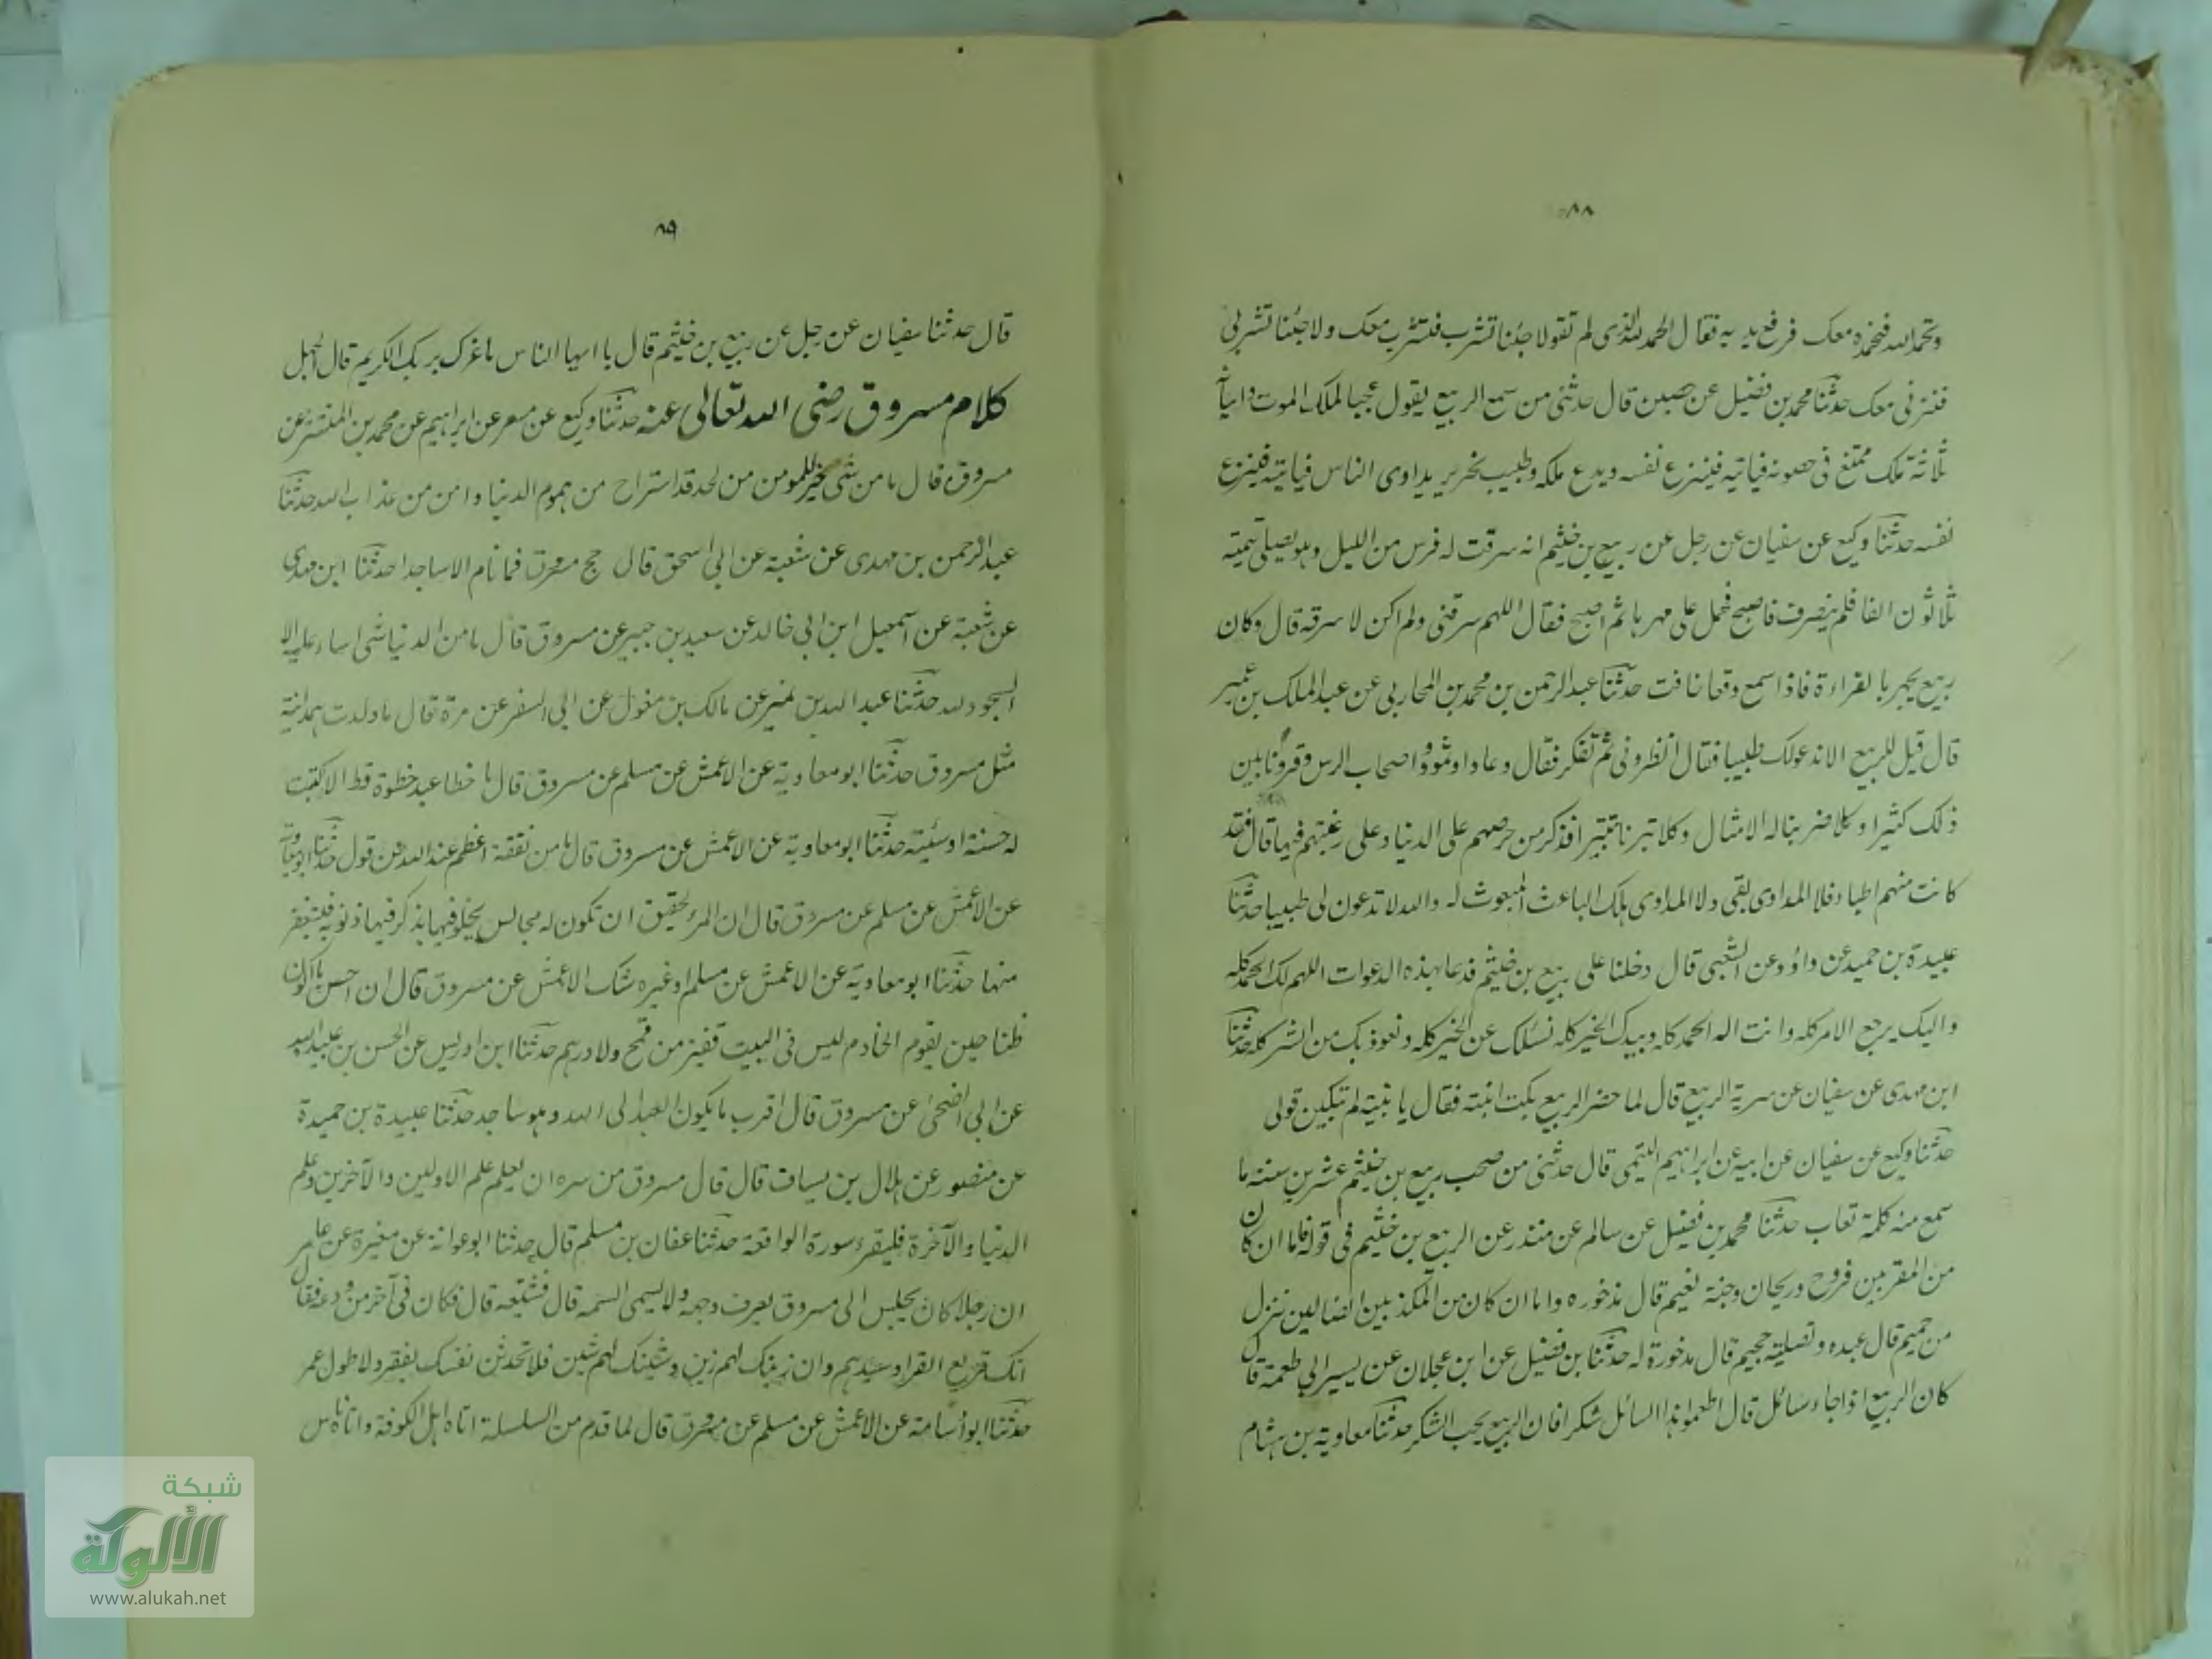 ٨٨
وتحمد الله فنحمده معك فرفع يديه فقال الحمد لله الذى لم تقولا جئنا تشرب فنشرب معك ولا جئنا تشربى
فنزنى معك حدثنا محمد بن فضيل عن حصين قال حدثنى من سمع الربيع يقول عجبا لملك الموت واتيانه
ثلاثة ملك ممتنع فى حصونه فياتيه فينزع نفسه ويدع ملكه وطبيب نحرير يداوى الناس فياتيه فينزع
نفسه حدثنا وكيع عن سفيان عن رجل عن ربيع بن خثيم انه سرقت له فرس من الليل وهو يصلى قيمته
ثلاثون الفا فلم ينصرف فاصبح فحمل على مهرها ثم اصبح فقال اللهم سرقنى ولم اكن لا سرقه قال وكان
ربيع يجهر بالقراءة فاذا سمع وقعا خافت حدثنا عبد الرحمن بن محمد بن المحاربى عن عبد الملك بن عمير
قال قيل للربيع الا ندعو لك طبيبا فقال انظرونى ثم تفكر فقال وعادا وثمود واصحاب الرس وقرونا بين
ذلك كثيرا وكلا ضربنا له الامثال وكلا تبرنا تتبيرا فذكر من حرصهم على الدنيا وعلى رغبتهم فيها قال فقد
كانت منهم اطباء فلا المداوى بقى ولا المداوى هلك الباعث المبعوث له والله لا تدعون لى طبيبا حدثنا
عبيدة بن حميد عن داؤد عن الشعبى قال دخلنا على ربيع بن خثيم فدعا بهذه الدعوات اللهم لك الحمد كله
واليك يرجع الامر كله وانت اله الحمد كله وبيدك الخير كله نسئلك عن الخير كله ونعوذ بك من الشر كله حدثنا
ابن مهدى عن سفيان عن سرية الربيع قال لما حضر الربيع بكت ابنته فقال يا بنية لم تبكين قولى
حدثنا وكيع عن سفيان عن ابيه عن ابراهيم التيمى قال حدثنى من صحب ربيع بن خيثم عشرين سنة ما
سمع منه كلمة تعاب حدثنا محمد بن فضيل عن سالم عن منذر عن الربيع بن خثيم فى قوله فاما ان كان
من المقربين فروح وريحان وجنة نعيم قال مذخوره واما ان كان من المكذبين الضالين فنزل
من حميم قال عبده وتصلية جحيم قال مذخورة له حدثنا بن فضيل عن ابن عجلان عن يسير ابى طعمة قال
كان الربيع اذا جاء سائل قال اطعموا هذا السائل شكرا فان الربيع يحب الشكر حدثنا معاوية بن هشام
٨٩
قال حدثنا سفيان عن رجل عن ربيع بن خثيم قال يا ايها الناس ما غرك بربك الكريم قال الجهل
كلام مسروق رضى الله تعالى عنه حدثنا وكيع عن مسعر عن ابراهيم عن محمد بن المنتشر عن
مسروق قال ما من شى خير للمومن من لحد قد استراح من هموم الدنيا وامن من عذاب الله حدثنا
عبد الرحمن بن مهدى عن شعبة عن ابى اسحق قال حج مسروق فما نام الا ساجدا حدثنا ابن مهدى
عن شعبة عن اسمعيل ابن ابى خالد عن سعيد بن جبير عن مسروق قال ما من الدنيا شى اساء عليه الا
السجود لله حدثنا عبد الله بن نمير عن مالك بن مغول عن ابى السفر عن مرة قال ما ولدت همدانية
مثل مسروق حدثنا ابو معاوية عن الاعمش عن مسلم عن مسروق قال ما خطا عبد خطوة قط الا كتبت
له حسنة او سئية حدثنا ابو معاوية عن الاعمش عن مسروق قال ما من نفقة اعظم عند الله من قول حدثنا ابو معاوية
عن الاعمش عن مسلم عن مسروق قال ان المرء لحقيق ان تكون له مجالس يخلو فيها يذكر فيها ذنوبه فيستغفر
منها حدثنا ابو معاوية عن الاعمش عن مسلم او غيره شك الاعمش عن مسروق قال ان احسن ما اكون
ظنا حين يقوم الخادم ليس فى البيت قفيز من قمح ولا درهم حدثنا ابن ادريس عن الحسن بن عبيد الله
عن ابى الضحى عن مسروق قال اقرب ما يكون العبد الى الله وهو ساجد حدثنا عبيدة بن حميدة
عن منصور عن هلال بن يساف قال قال مسروق من سره ان يعلم علم الاولين والآخرين وعلم
الدنيا والآخرة فليقرء سورة الواقعة حدثنا عفان بن مسلم قال حدثنا ابو عوانة عن مغيرة عن عامر
ان رجلا كان يجلس الى مسروق يعرف وجهه ولا يسمى اسمه قال فشيعه قال فكان فى آخر من ودعه فقال
انك قريع القراء وسيدهم وان زينك لهم زين وشينك لهم شين فلا تحدثن نفسك بفقر ولا طول عمر
حدثنا ابو أسامة عن الاعمش عن مسلم عن مسروق قال لما قدم من السلسلة اتاه اهل الكوفة واتاه ناس
شبكة
الألوكة
www.alukah.net